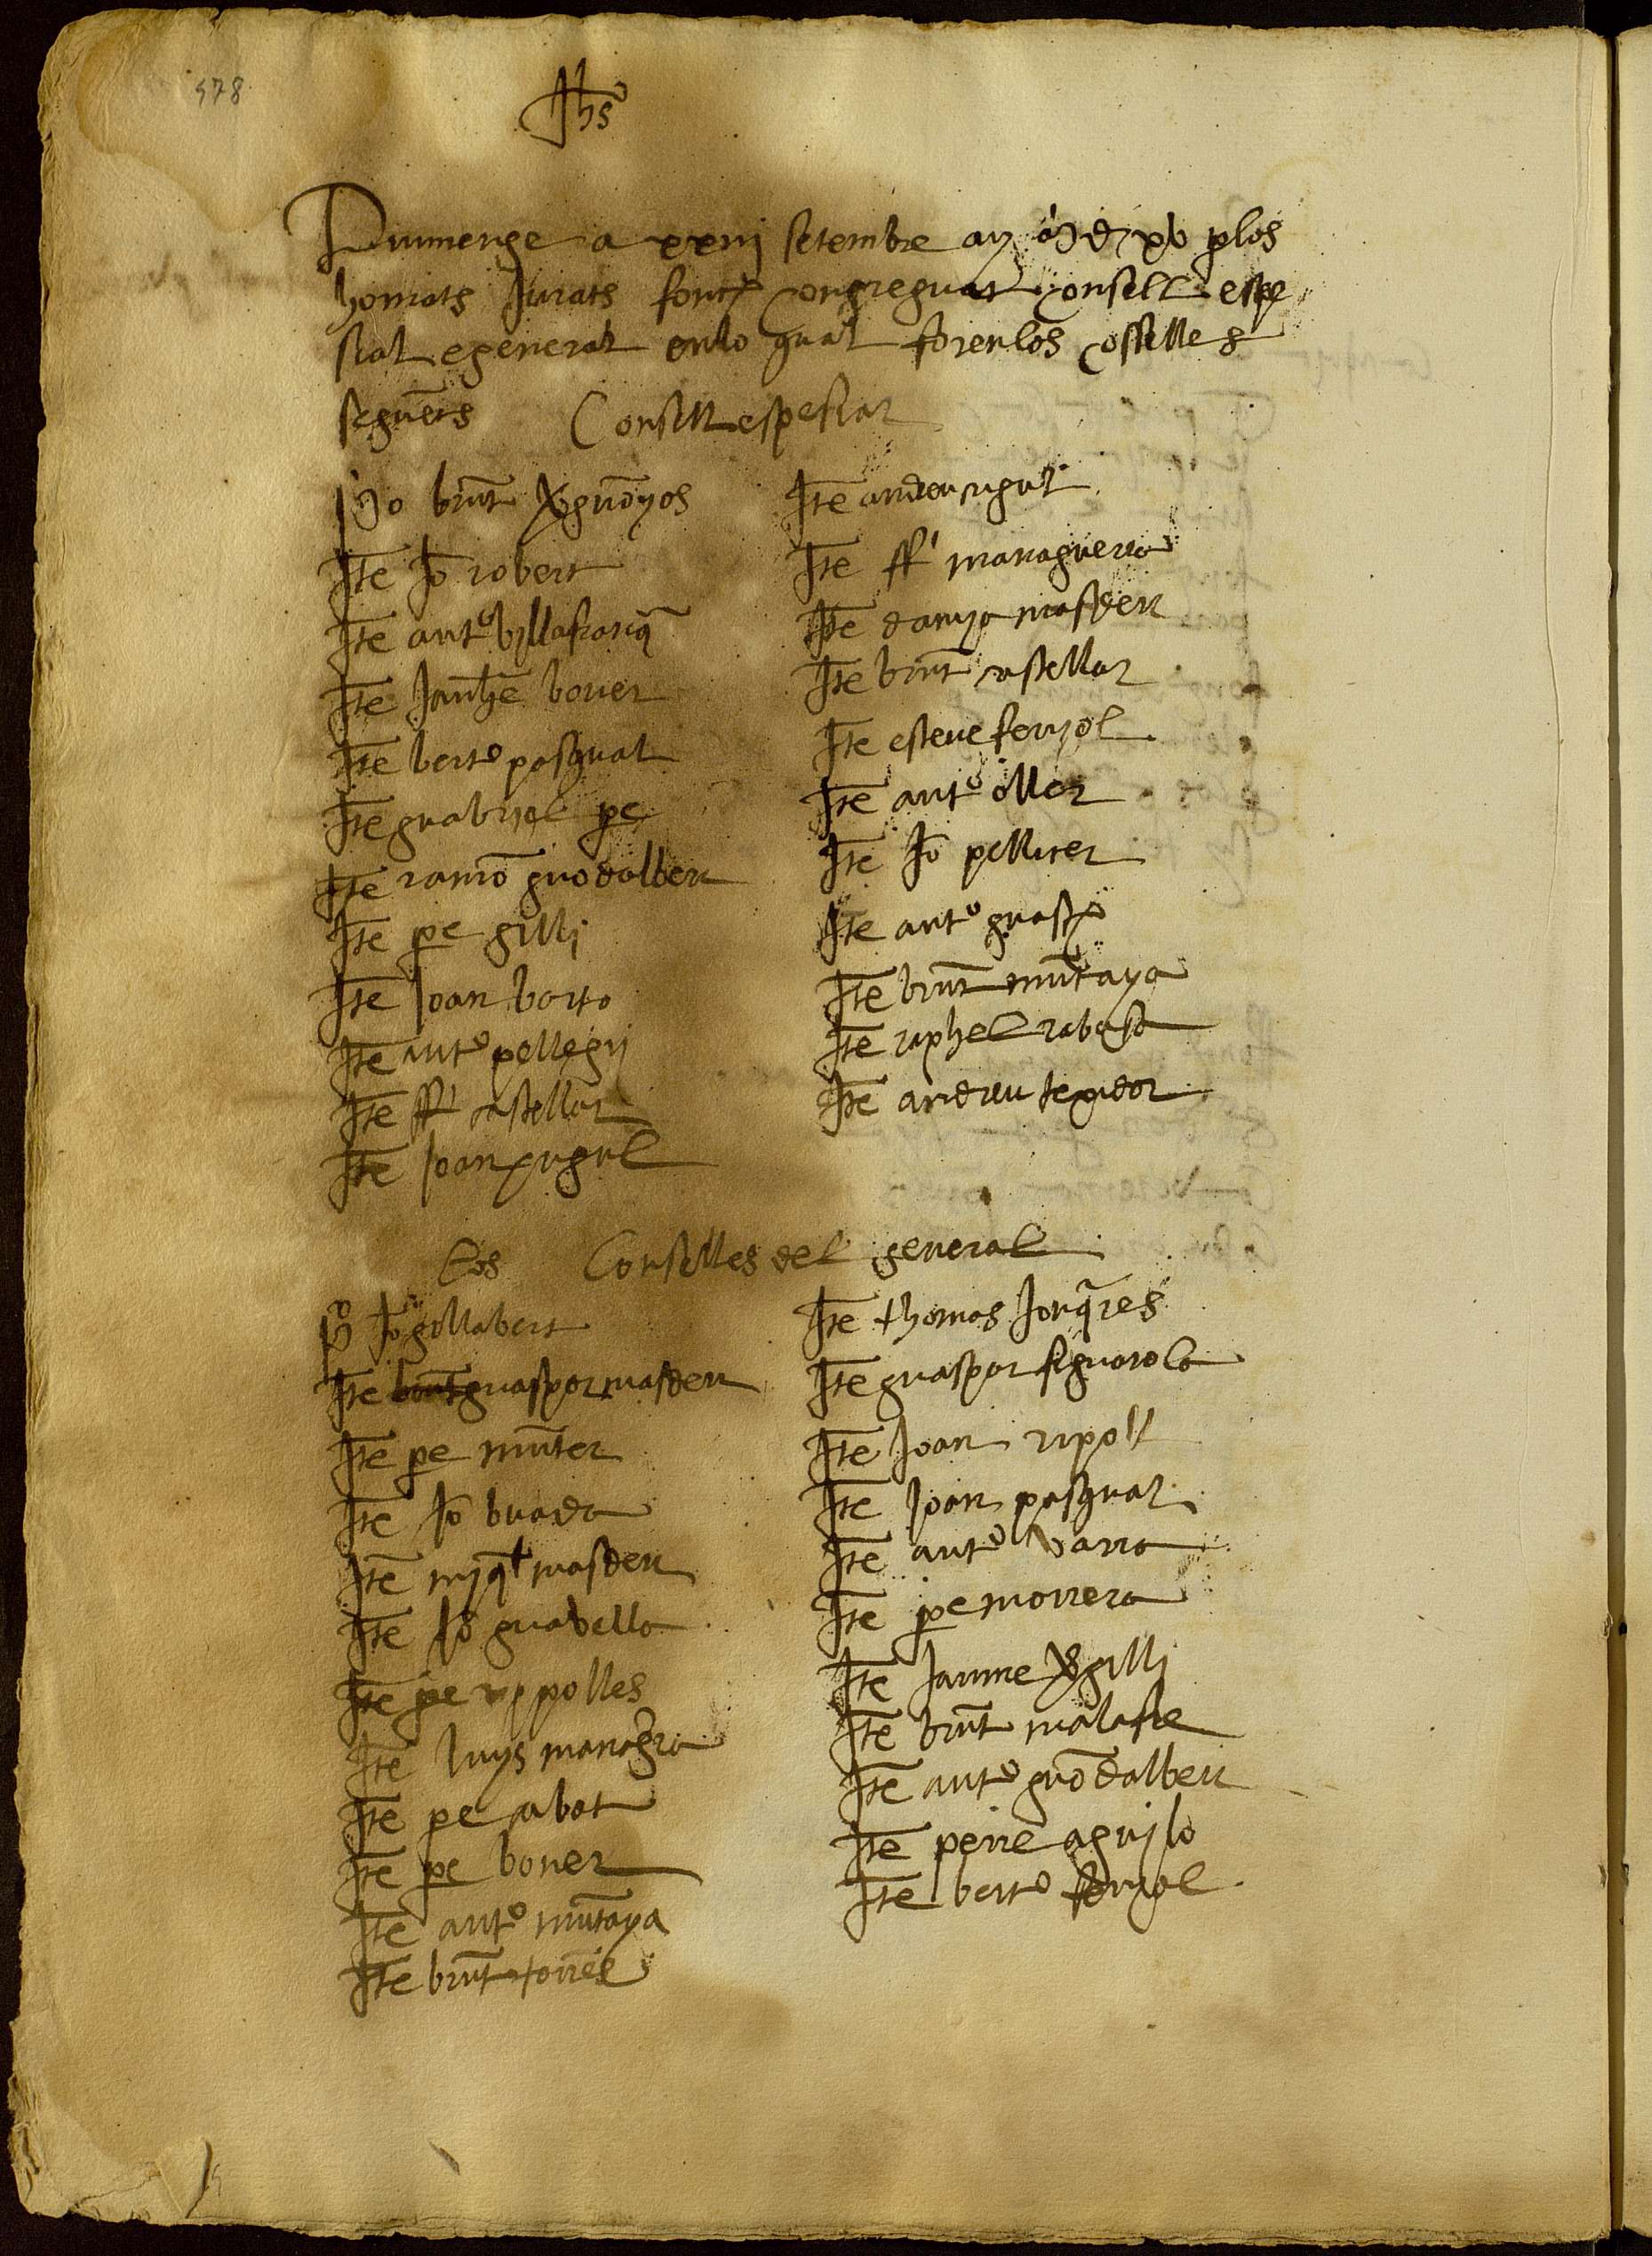 478
Jhs
Diumenge a xxiij setembre any M D xv p los
honrats Jurats fonch congreguat consell espe
sial e general en lo qual foren los cosselles
seguēts Consell espesial
pº brnt
Ite Jo robert
Ite antº villafranq̄
Ite Jaume bover
Ite bertº pasqual
Ite guabriel pe
Ite ramō guodalbeu
Ite pe gilli
Ite Joan borto
Ite antº pellegrj
Ite ff castellar
Ite Joan cugul
Ite andreu cugul
Ite ff managuerra
Ite damja masdeu
Ite brnt castellar
Ite esteve ferrjol
Ite antº oller
Ite Jo pelliser
Ite antº guasch
Ite brnt mūtaya
Ite raphel rabasa
Ite andreu texidor
Los Conselles del general
pº Jo gillabert
Ite guaspar masdeu
Ite pe mūter
Ite Jo buada
Ite mjql masdeu
Ite Jo guavella
Ite pe rippolles
Ite luys managra
Ite pe sabat
Ite pe bover
Ite antº mūtaya
Ite brnt torres
Ite thomas Jonq̄res
Ite guaspar figuarola
Ite Joan ripoll
Ite Joan pasqual
Ite antº varra
Ite pe morrera
Ite Jaume
Ite brnt malafre
Ite antº guodalbeu
Ite perre agujlo
Ite bertº ferrjol